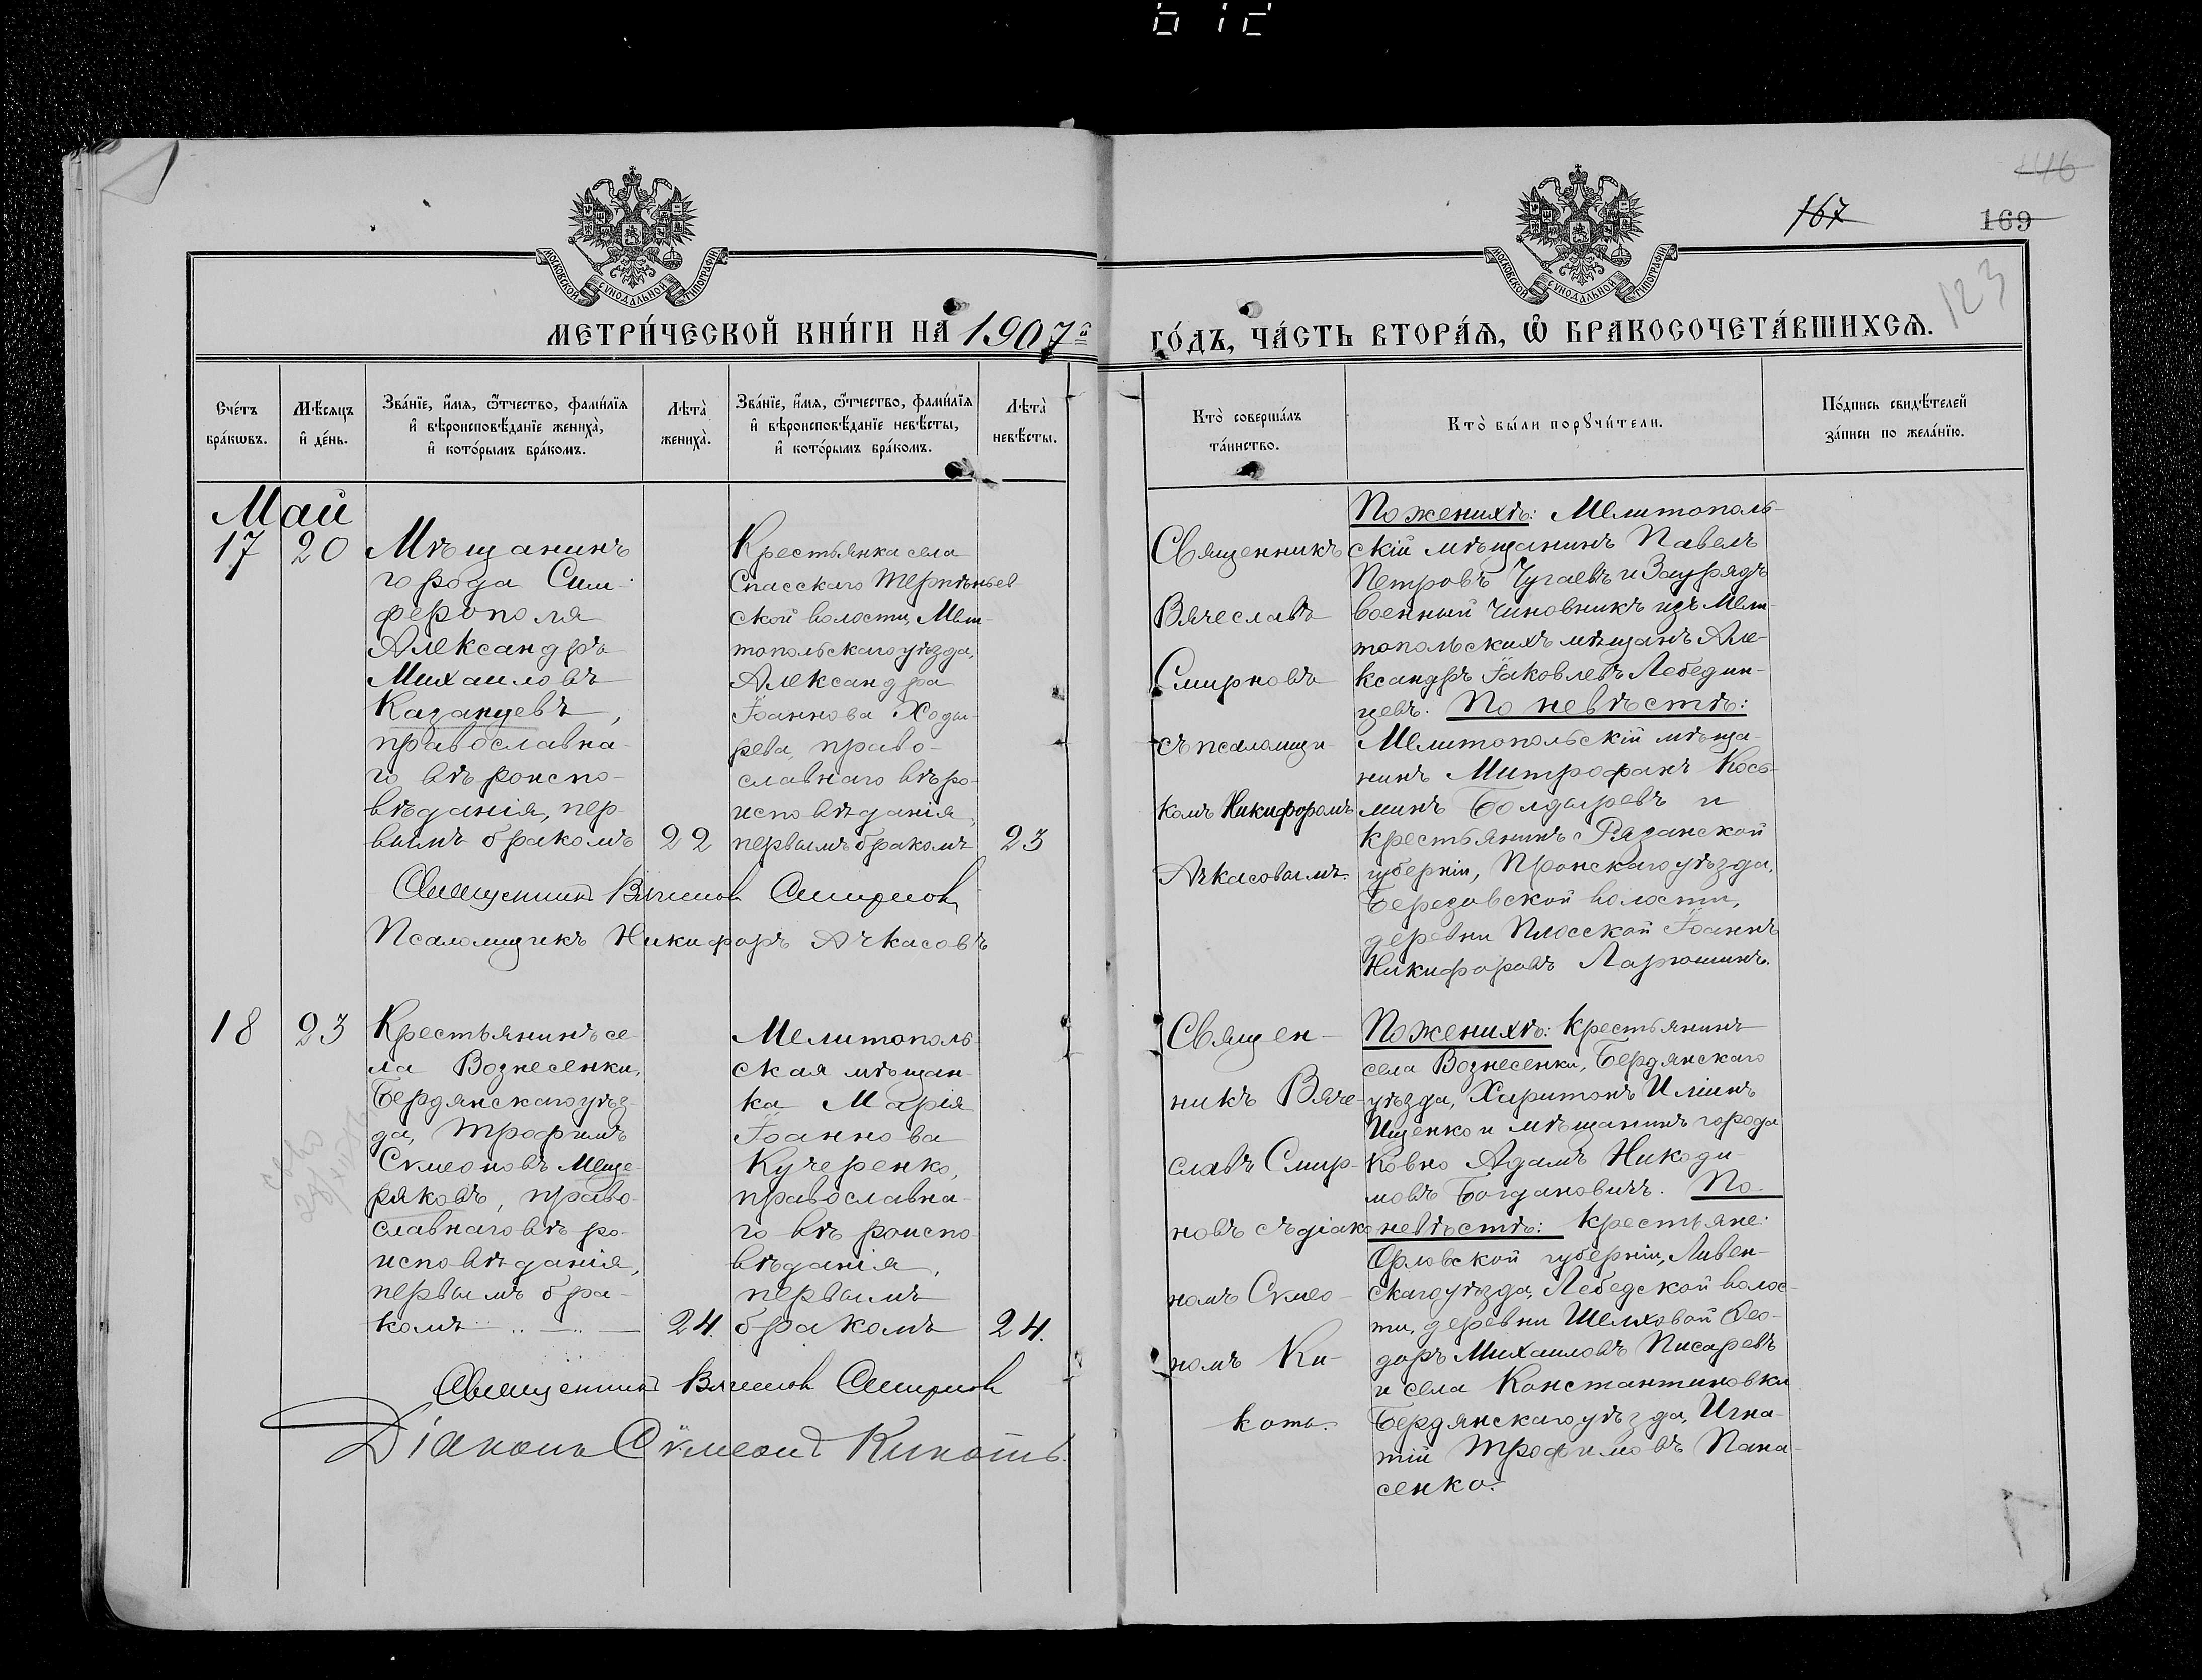 167
169
123
МОСКОВСКОЙ СѴНОДАЛЬНОЙ ТИПОГРАФІИ
МОСКОВСКОЙ СѴНОДАЛЬНОЙ ТИПОГРАФІИ
МЕТРИ́ЧЕСКОЙ КНИ́ГИ НА 1907й
ГО́ДЪ, ЧА́СТЬ ВТОРА́Ѧ, Ѽ БРАКОСОЧЕТА́ВШИХСѦ.
Счéтъ
брáкѡвъ.
Мѣ́сѧцъ
и҆ дéнь.
Звáнїе, и҆́мѧ, ѻ҆́тчество, фамѝлїѧ
и҆ вѣроисповѣ́данїе женихà,
и҆ котóрымъ брáкомъ.
Лѣтà
женихà.
Звáнїе, и҆́мѧ, ѻ҆́тчество, фамѝлїѧ
и҆ вѣроисповѣ́данїе невѣ́сты,
и҆ котóрымъ брáкомъ.
Лѣтà
невѣ́сты.
Ктò совершáлъ
тáинство.
Ктò бы́ли порꙋчи́тели.
Пóдпись свидѣ́телей
зáписи по желáнїю.
Май
17
20
Мѣщанинъ
города Сим-
ферополя
Александръ
Михаиловъ
Казанцевъ,
православна-
го вѣроиспо-
вѣданія, пер-
вымъ бракомъ
22
Крестьянка села
Спасскаго Терпѣньев-
ской волости, Мели-
топольскаго уѣзда,
Александра
Іоаннова Ходы-
рева, право-
славнаго вѣро-
исповѣданія,
первымъ бракомъ
23
Священникъ Вячеслав Смирнов
Псаломщикъ Никифоръ Ачкасовъ
Священникъ
Вячеславъ
Смирновъ
съ псаломщи-
комъ Никифоромъ
Ачкасовымъ.
По женихѣ: Мелитополь-
скій мѣщанинъ Павелъ
Петровъ Чугаевъ и Заурядъ
военный чиновникъ изъ Мели-
топольскихъ мѣщанъ Але-
ксандръ Іаковлевъ Лебедин-
цевъ. По невѣстѣ:
Мелитопольскій мѣща-
нинъ Митрофанъ Кось-
минъ Болдыревъ и
крестьянинъ Рязанской
губерніи, Пронскаго уѣзда,
Березовской волости,
деревни Плосской Іоаннъ
Никифоровъ Ларюшинъ.
18
23
Крестьянинъ се-
ла Вознесенки,
Бердянскаго уѣз-
да, Трофимъ
Сѵмеоновъ Меще-
ряковъ, право-
славнаго вѣро-
исповѣданія,
первымъ бра-
комъ
24.
Мелитополь-
ская мѣщан-
ка Марія
Іоаннова
Кучеренко,
православна-
го вѣроиспо-
вѣданія,
первымъ
бракомъ
24.
Священникъ Вячеслав Смирнов
Діаконъ Сѵмеонъ Кикоть.
Священ-
никъ Вяче-
славъ Смир-
новъ съ діако-
номъ Сѵмео-
номъ Ки-
коть.
По женихѣ: крестьянинъ
села Вознесенки, Бердянскаго
уѣзда, Харитонъ Иліинъ
Ищенко и мѣщанинъ города
Ковно Адамъ Никоди-
мовъ Богдановичъ. По
невѣстѣ: крестьяне:
Орловской губерніи, Ливен-
скаго уѣзда, Лебедской волос-
ти, деревни Шелховой Ѳео-
доръ Михаиловъ Писаревъ
и села Константиновки
Бердянскаго уѣзда, Игна-
тій Трофимовъ Пана-
сенко.